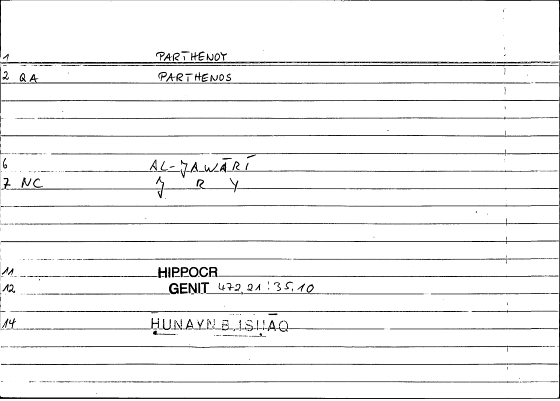 1 PARTHENOY
2 QA PARTHENOS
6 AL-JAWĀRĪ
7 NC J R Y
11 HIPPOCR
12 GENIT 472,21:35,10
14 ḤUNAYN B. ISḤĀQ